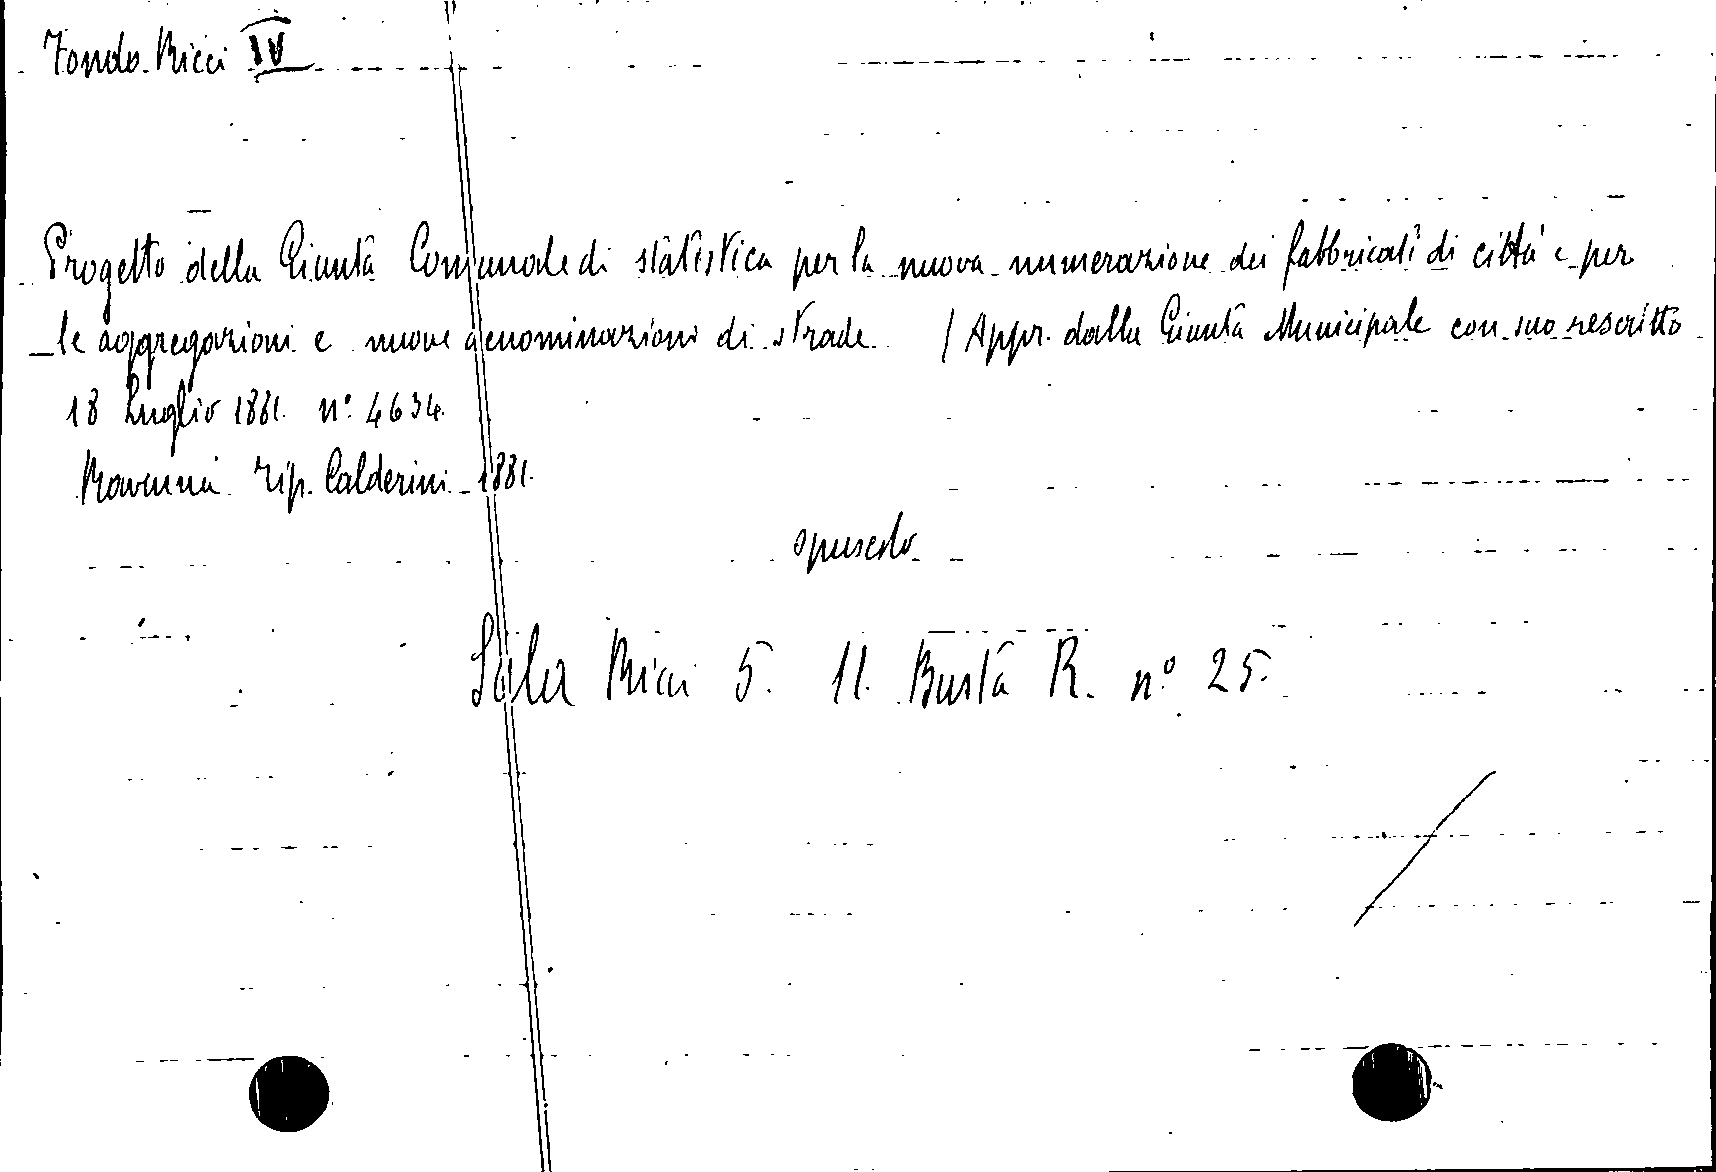 Fondo Ricci IV
Progetto della Giunta Comunale di statistica per la nuova numerazione dei fabbricati di città e per
le aggregazioni e nuove denominazioni di strade / Appr. dalla Giunta Municipale con suo rescritto
18 Luglio 1881. n° 4634.
Ravenna Tip. Calderini 1881.
opuscolo
Sala Ricci 5. 11. Busta R. n° 25.